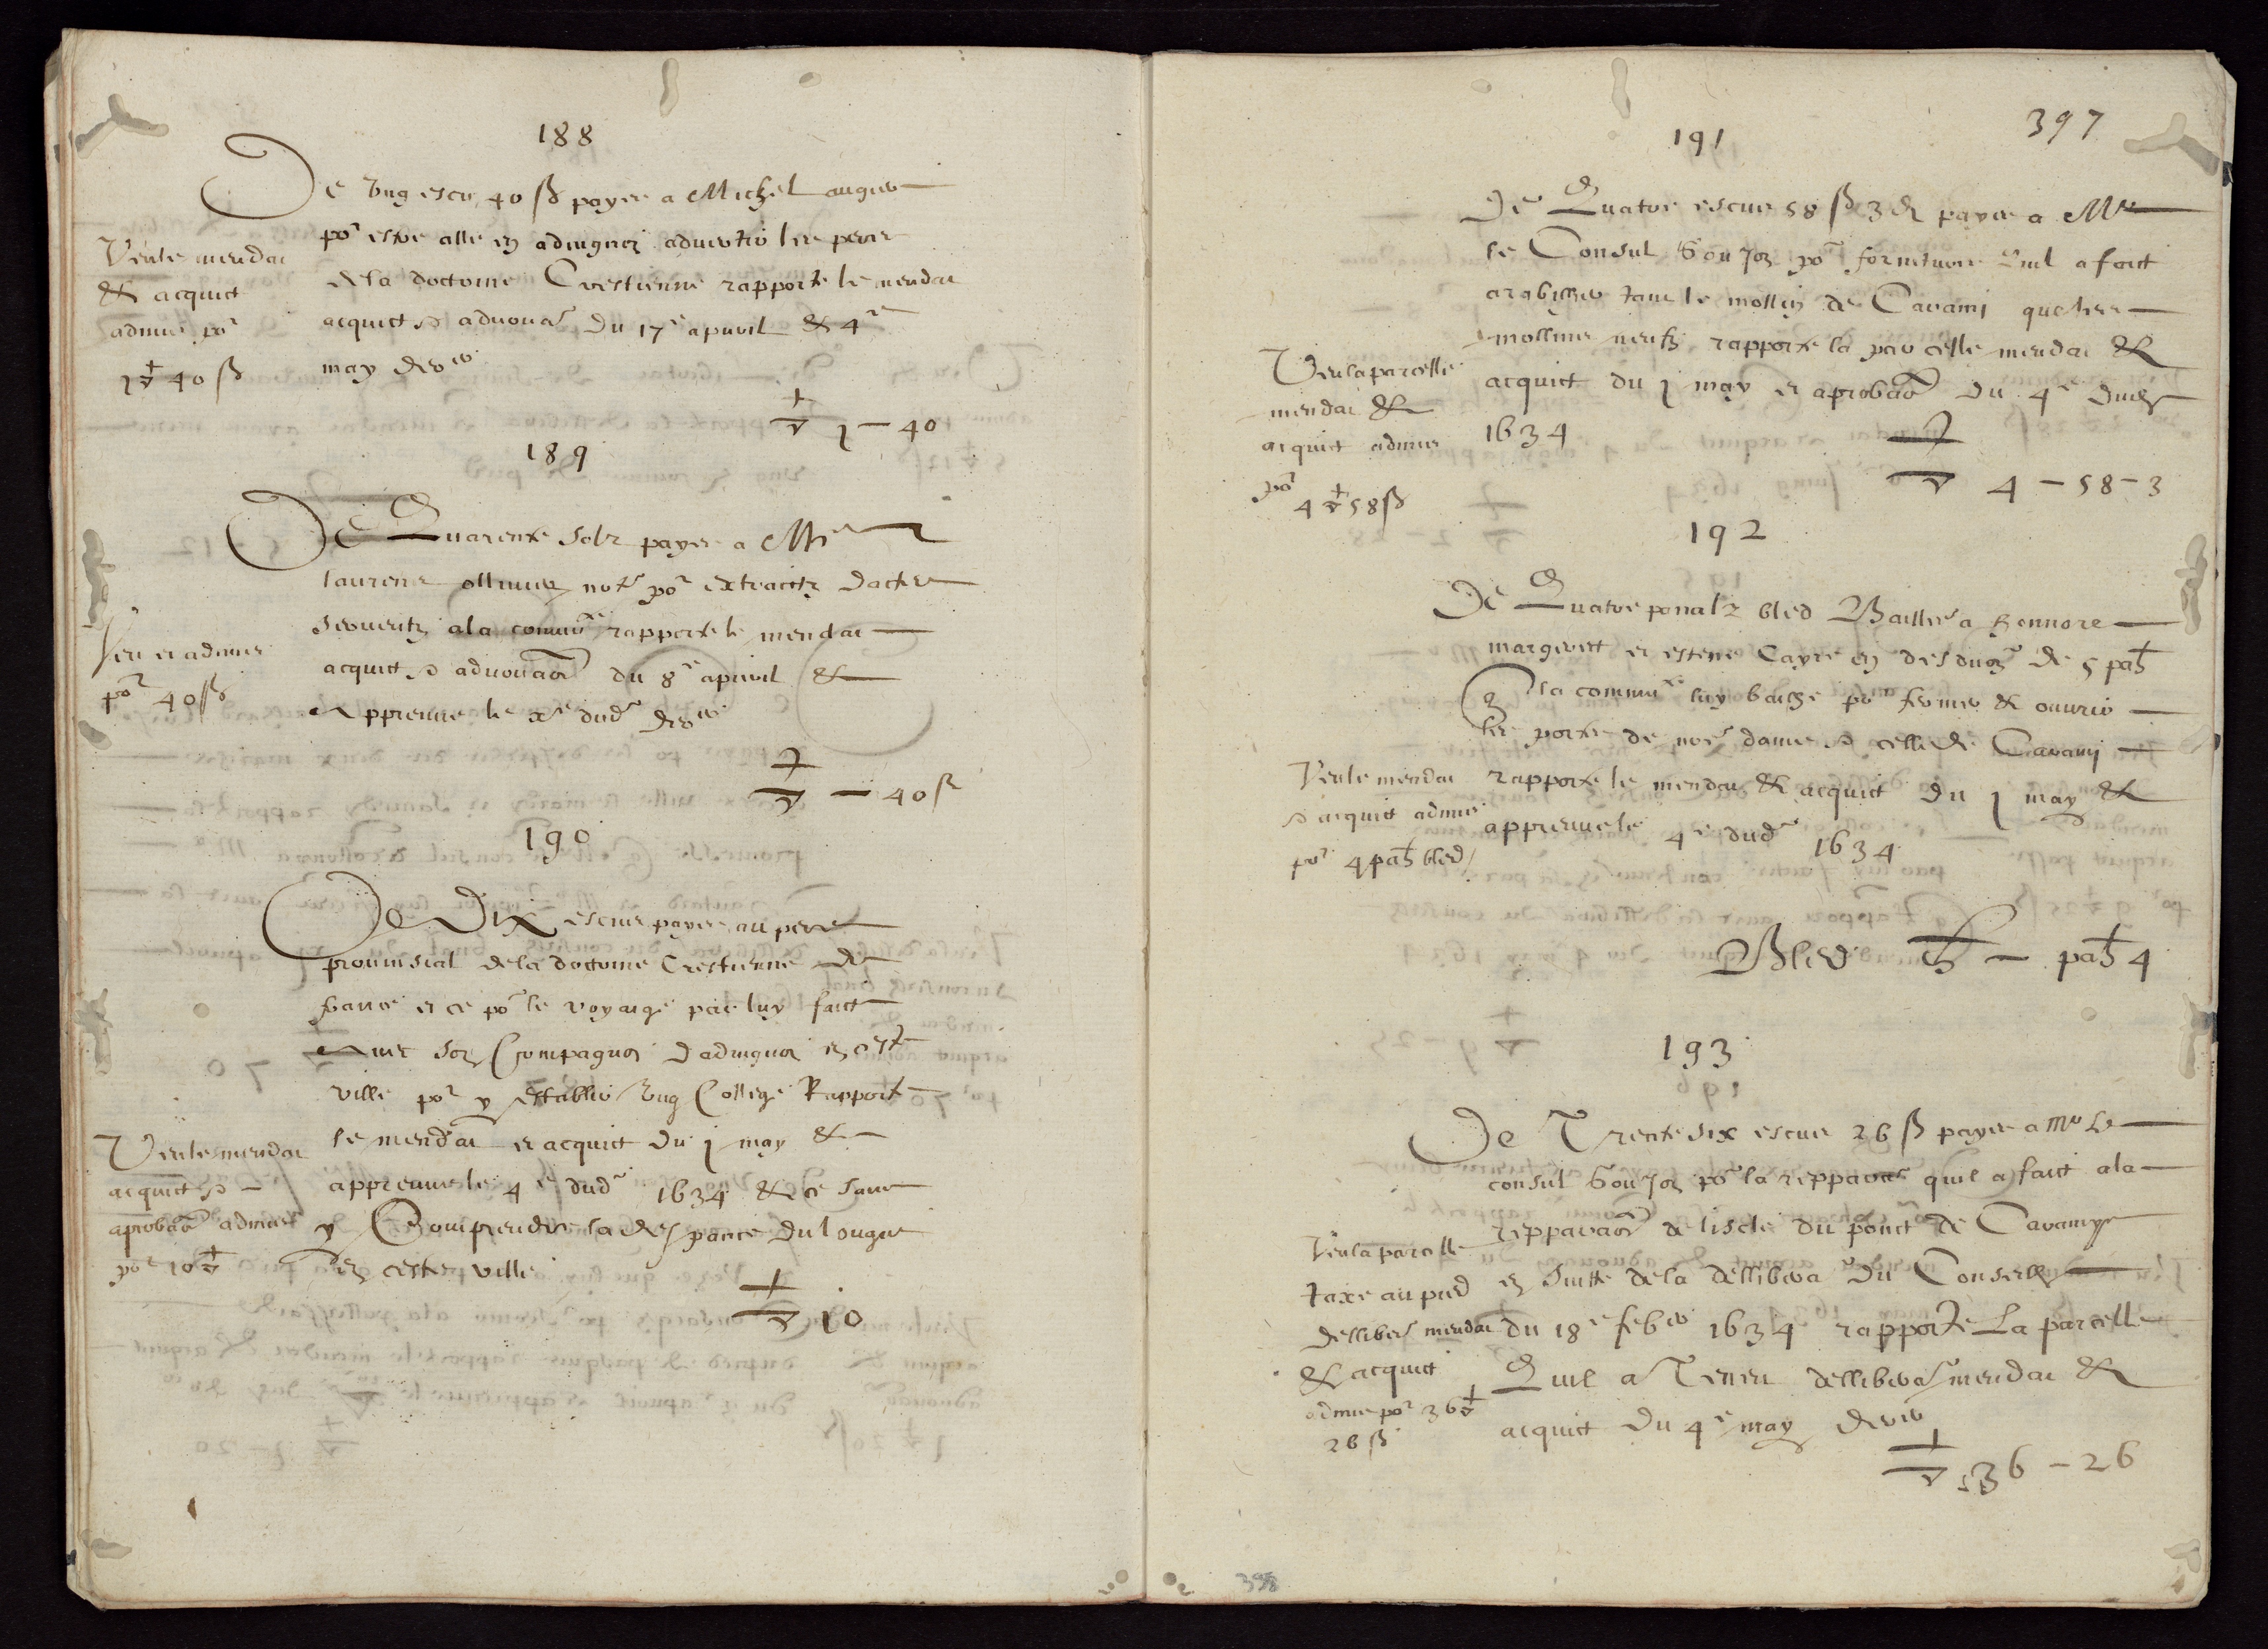 188
De ung escu 40 ß payes a Michel
po^r estre alle en advignon advertir les peres
de la doctrine Crestienne rapporte le mendat
acquict & advouа^on du 17^e apvril & 4^e
may
Veu le mendat
& acquict
admis po^r
1 40 ß
1 - 40
189
De Quarente solz payes a M^e
laurens ollivier not^e po^r extraictz dactes
a la commu^te rapporte le mendat
acquict & advouaon du 8^e apvril &
appreuve le x^e dud^t
Veu et admis
po^r 40 ß
- 40 ß
190
De Dix escus payes au pere
provinsial de la doctrine Crestienne de
france et ce po^r le voyaige par luy faict
avec son Compagnon dadvignon en ceste
ville po^r y establir ung College Rapporte
le mendat et acquict du 1 may &
appreuve le 4^e dud^t 1634 & ce sans
y Comprendre la despance du lougis
en ceste ville
Veu le mendat
acquict &
aprobaon admis
po^r 10
10
397
191
De Quatre escus 58 ß 3 d payes a M^r
le Consul po^r fornitures quil a faict
tant le mollin de Cavami que les
mollins neufz rapporte la parcelle mendat &
acquict du 1 may et aprobaon du 4^e dudt
1634
Veu la parcelle
mendat &
acquict admis
po^r
4 58 ß
4 - 58 - 3
192
De Quatre ponalz bled Bailles a honnore
et estene Cayre en de 5 pa^h
la commu^te luy baille po^r fermer & ouvrir
les portes de no^e dame & celle de Cavami
rapporte le mendat & acquict du 1 may &
appreuve le 4^e dud^t 1634
Veu le mendat
& acquict admis
po^r 4 pa^h bled
Bled - pa^h 4
193
De Trente six escus 26 ß payes a M^r le
consul po^r la reppara^on quil a faict a la
repparaon de liscle du ponct de Cavamy
en suitte de la dellibera^on du Conseilh
du 18^e feb^er 1634 rapporte La parcelle
Quil a Teneu dellibera^on mendat &
acquict du 4^e may
Veu la parcelle
taxe au pied
dellibera^on mendat
& acquict
admis po^r 36
26 ß
36 - 26
398